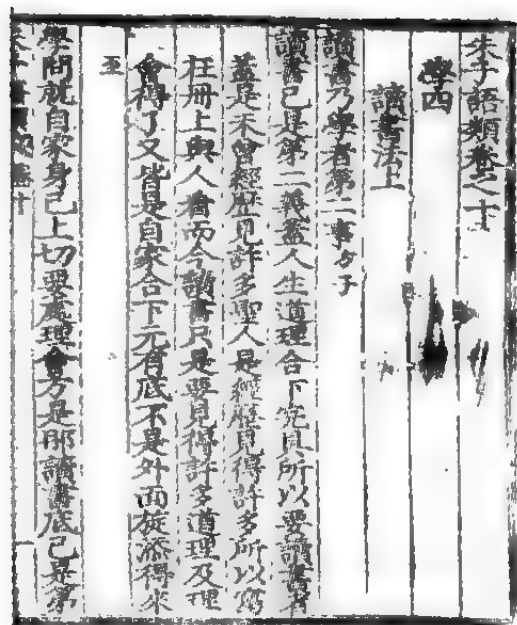 朱子語類卷之十
學四
讀書法上
讀書乃學者第二事方子
讀書已是第二義蓋人生道理合下完具所以要讀書者
蓋是未曾經歷見許多聖人是經歷見得許多所以寫
在冊上與人看而今讀書只是要見得許多道理及理
會得了又皆是自家合下元有底不是外面旋添得來
至
學問就自家身己上切要處理會方是那讀書底已是第